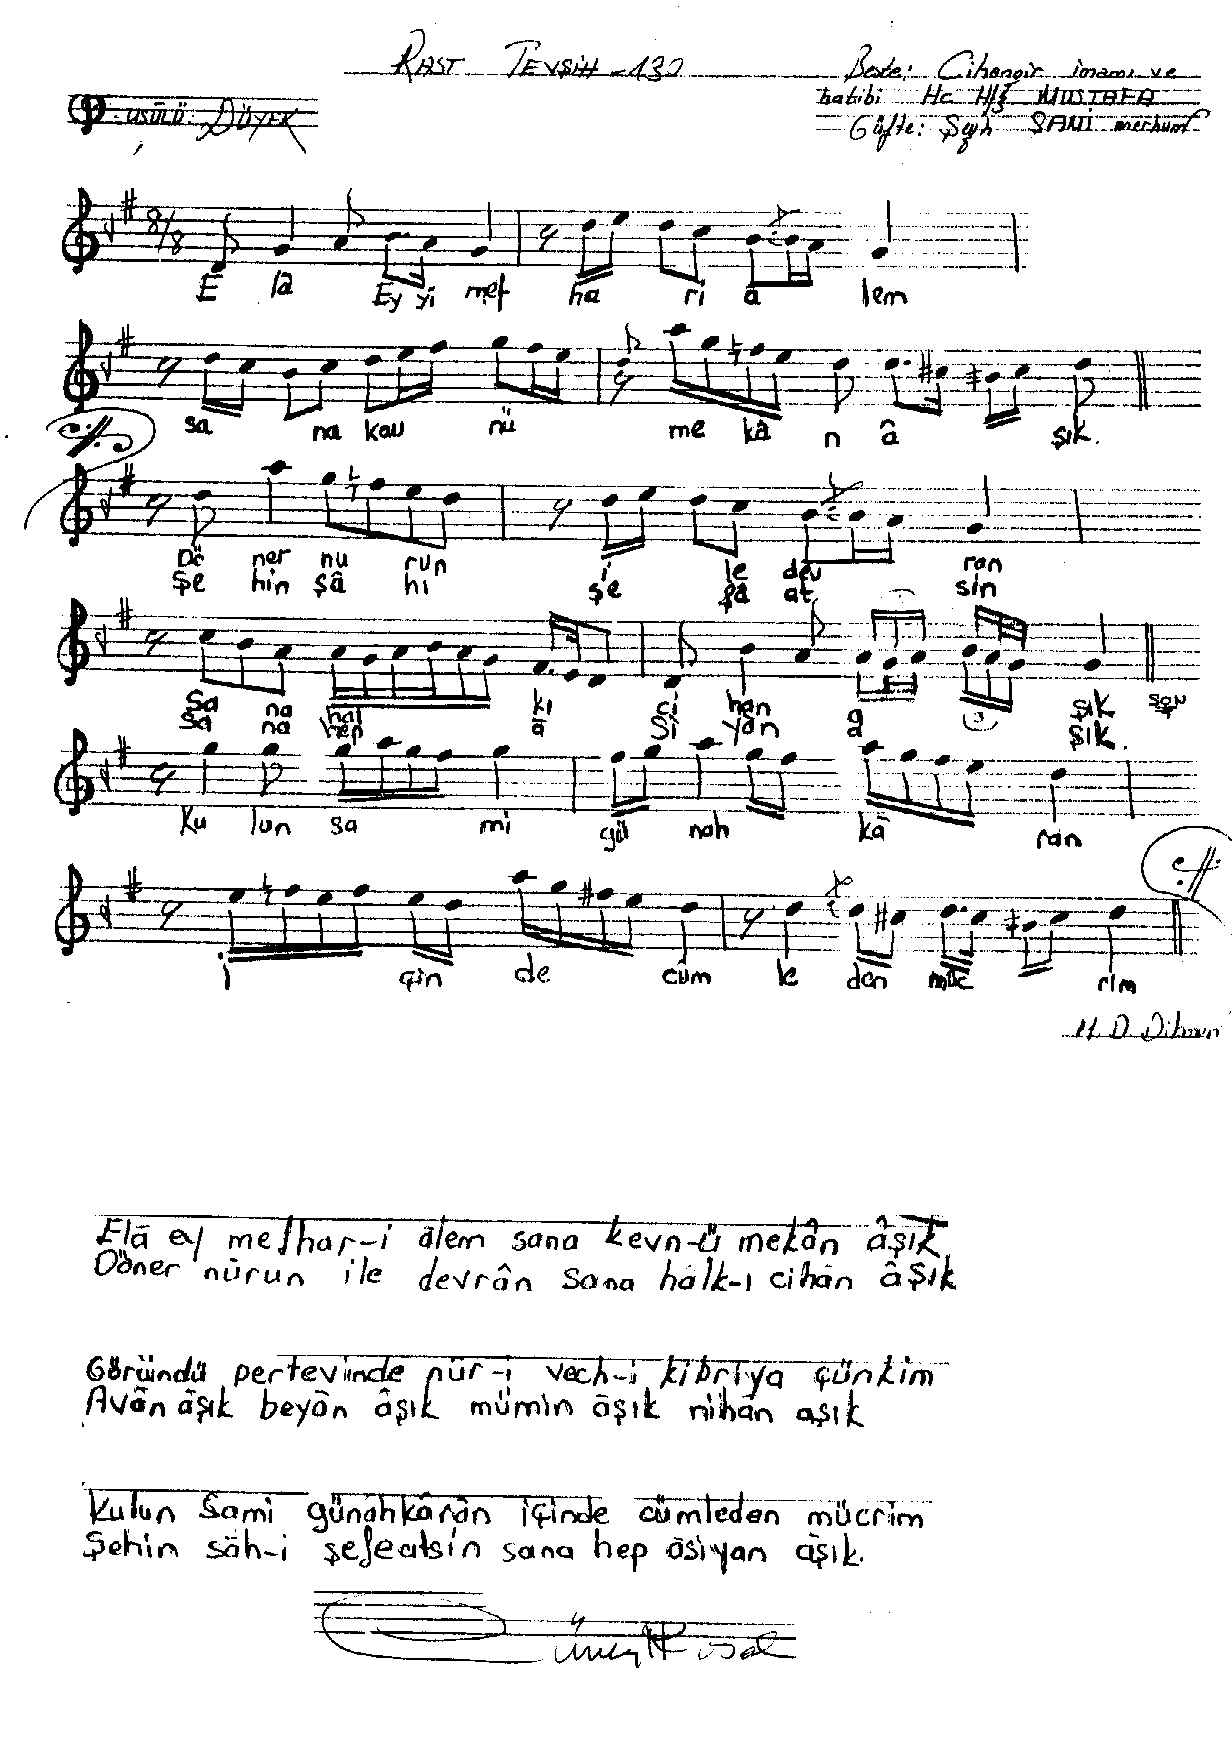 RAST TEVŞİH - 130
Beste: Cihangir imamı ve
hatibi Hc Hfz MUSTAFA
USÛLÜ: DÜYEK
Güfte: Şeyh SAMİ merhum
8/8
E lâ Ey yi mef ha ri â lem
sa na kav nü me kâ n â şık.
Dö ner nu run i le dev ran
Şe hin şâ hı şe fâ at sin
Sa na hal kı ci han a şık son
Sa na hep â si yan a şık.
Ku lun sa mi gü nah kâ ran
i çin de cüm le den müc rim
H. D. Dikmen
Elâ ey mefhar-i âlem sana kevn-ü mekân âşık,
Döner nûrun ile devrân sana halk-ı cihân âşık
Göründü pertevinde nûr-i vech-i kibriya çünkim
Ayân âşık beyân âşık mümin âşık nihân aşık
Kulun Sami günâhkârân içinde cümleden mücrim
Şehin şâh-i şefeatsin sana hep âsiyan âşık.